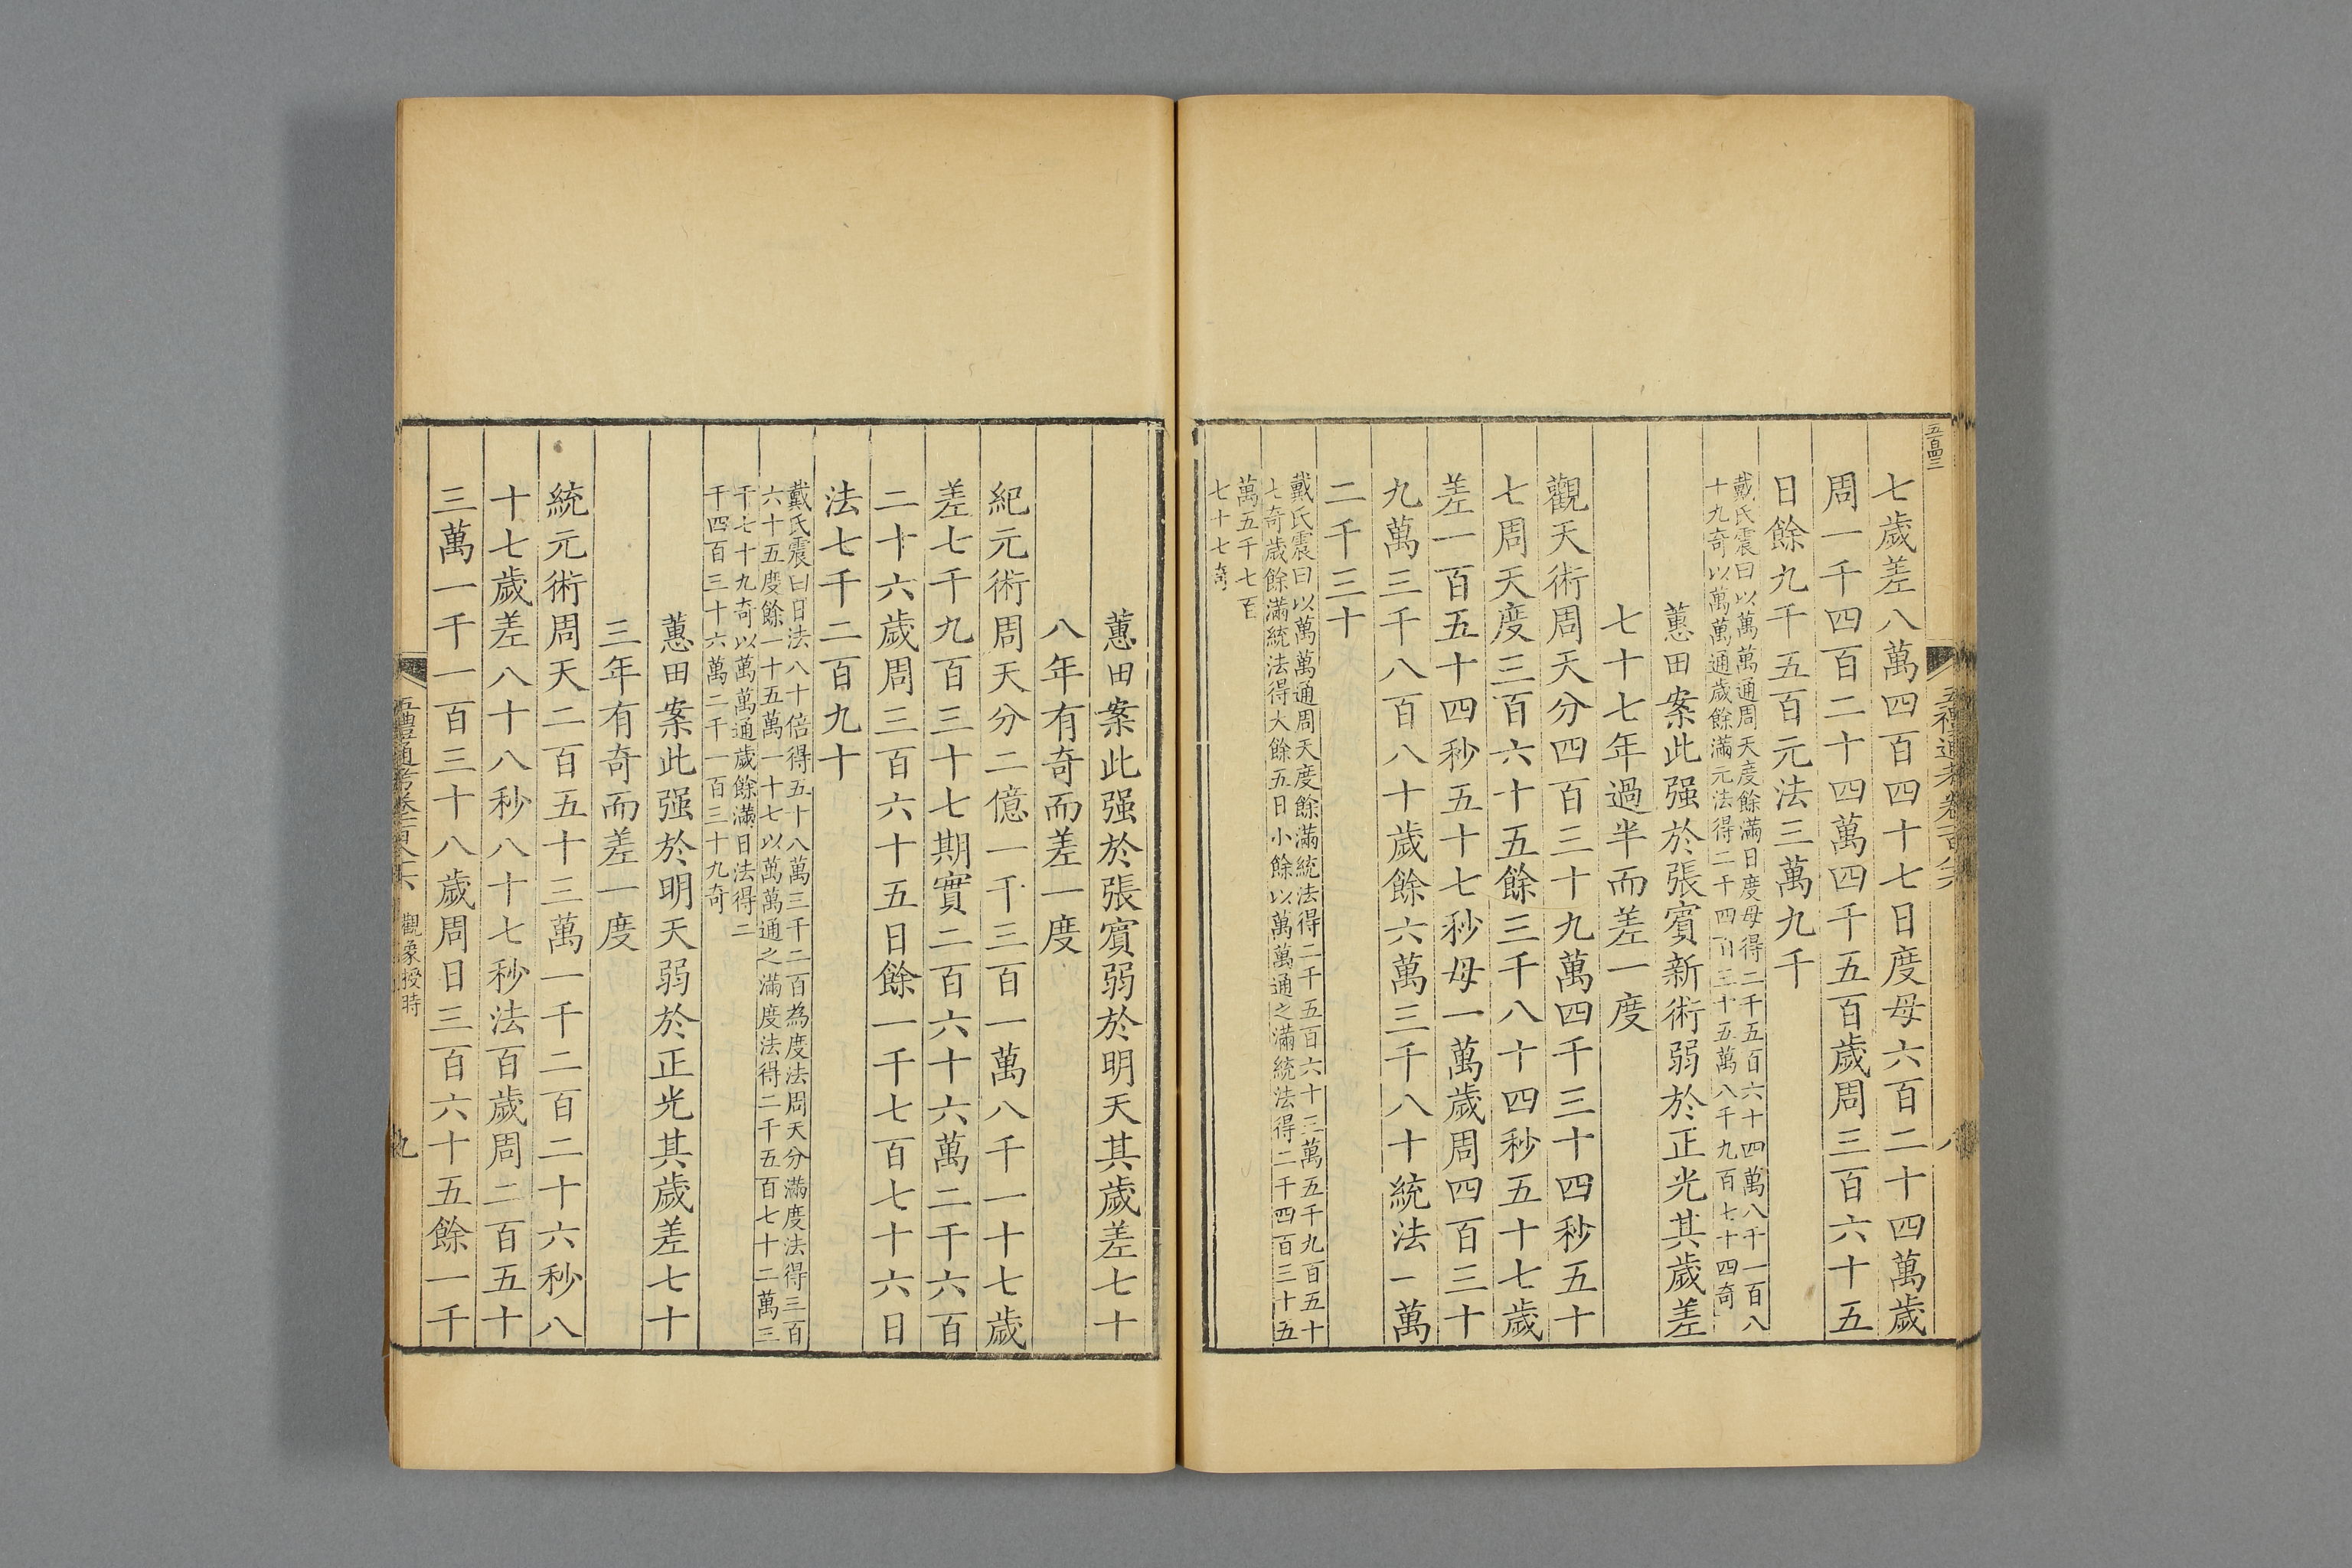 五百四三
五禮通考卷一百八十六
八
七歲差八萬四百四十七日度母六百二十四萬歲
周一千四百二十四萬四千五百歲周三百六十五
日餘九千五百元法三萬九千
戴氏震曰以萬萬通周天度餘滿日度母得二千五百六十四萬八千一百八
十九奇以萬萬通歲餘滿元法得二千四百三十五萬八千九百七十四奇
蕙田案此强於張賓新術弱於正光其歲差
七十七年過半而差一度
觀天術周天分四百三十九萬四千三十四秒五十
七周天度三百六十五餘三千八十四秒五十七歲
差一百五十四秒五十七秒母一萬歲周四百三十
九萬三千八百八十歲餘六萬三千八十統法一萬
二千三十
戴氏震曰以萬萬通周天度餘滿統法得二千五百六十三萬五千九百五十
七奇歲餘滿統法得大餘五日小餘以萬萬通之滿統法得二千四百三十五
萬五千七百
七十七奇
蕙田案此强於張賓弱於明天其歲差七十
八年有奇而差一度
紀元術周天分二億一千三百一萬八千一十七歲
差七千九百三十七期實二百六十六萬二千六百
二十六歲周三百六十五日餘一千七百七十六日
法七千二百九十
戴氏震曰日法八十倍得五十八萬三千二百為度法周天分滿度法得三百
六十五度餘一十五萬一十七以萬萬通之滿度法得二千五百七十二萬三
千七十九奇以萬萬通歲餘滿日法得二
千四百三十六萬二千一百三十九奇
蕙田案此强於明天弱於正光其歲差七十
三年有奇而差一度
統元術周天二百五十三萬一千二百二十六秒八
十七歲差八十八秒八十七秒法百歲周二百五十
三萬一千一百三十八歲周日三百六十五餘一千
五禮通考卷一百八十六 觀象授時
九